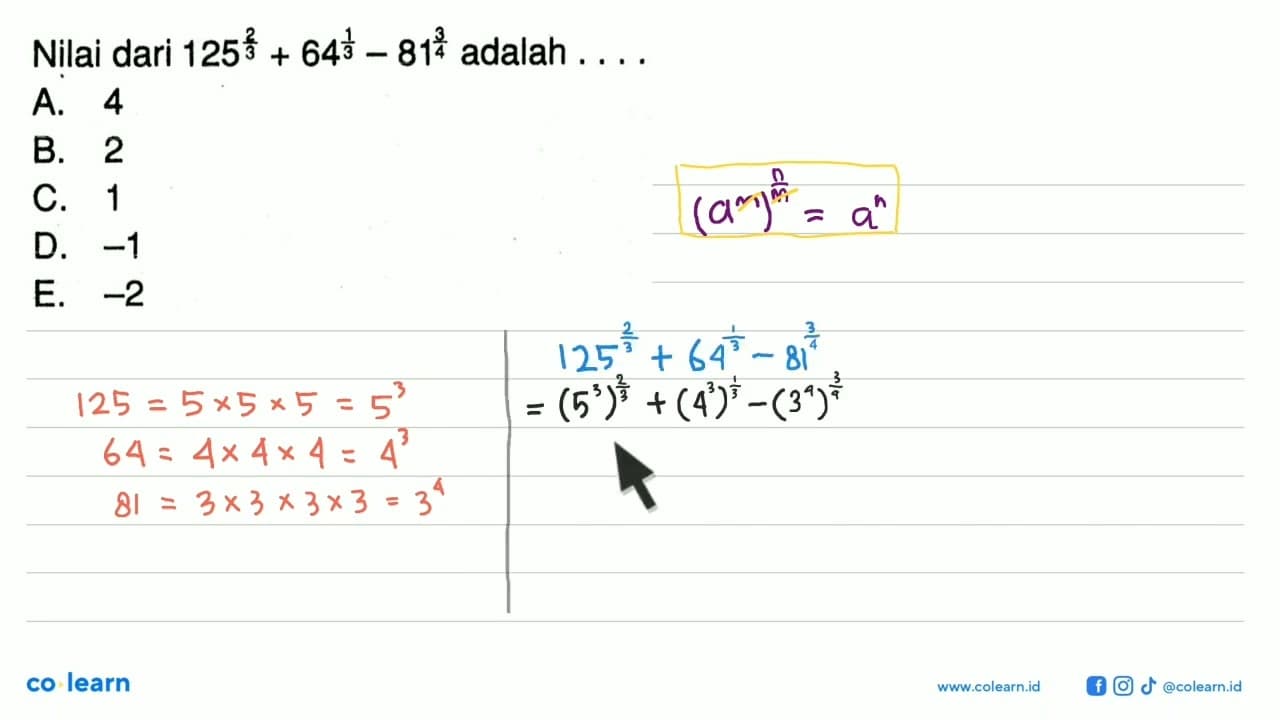 Nilai dari 125^(2/3) + 64^(1/3) – 81^(3/4) adalah . . . .
A. 4
B. 2
C. 1
D. –1
E. –2
(a^m)^(n/m) = a^n
125 = 5 × 5 × 5 = 5^3
64 = 4 × 4 × 4 = 4^3
81 = 3 × 3 × 3 × 3 = 3^4
125^(2/3) + 64^(1/3) – 81^(3/4)
= (5^3)^(2/3) + (4^3)^(1/3) – (3^4)^(3/4)
co learn
www.colearn.id
@colearn.id